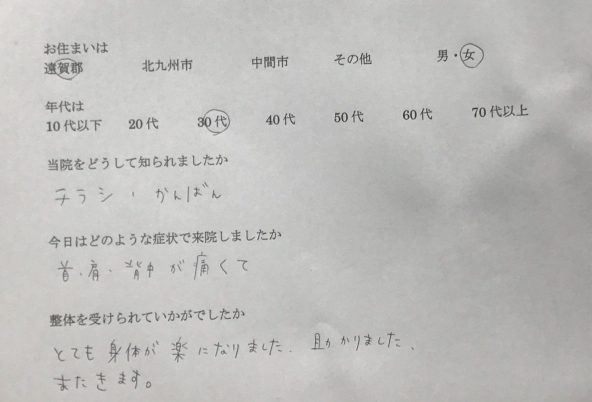 お住まいは
遠賀郡 北九州市 中間市 その他 男・女
年代は
10代以下 20代 30代 40代 50代 60代 70代以上
当院をどうして知られましたか
チラシ・かんばん
今日はどのような症状で来院しましたか
首、肩、背中が痛くて
整体を受けられていかがでしたか
とても身体が楽になりました。助かりました。
またきます。